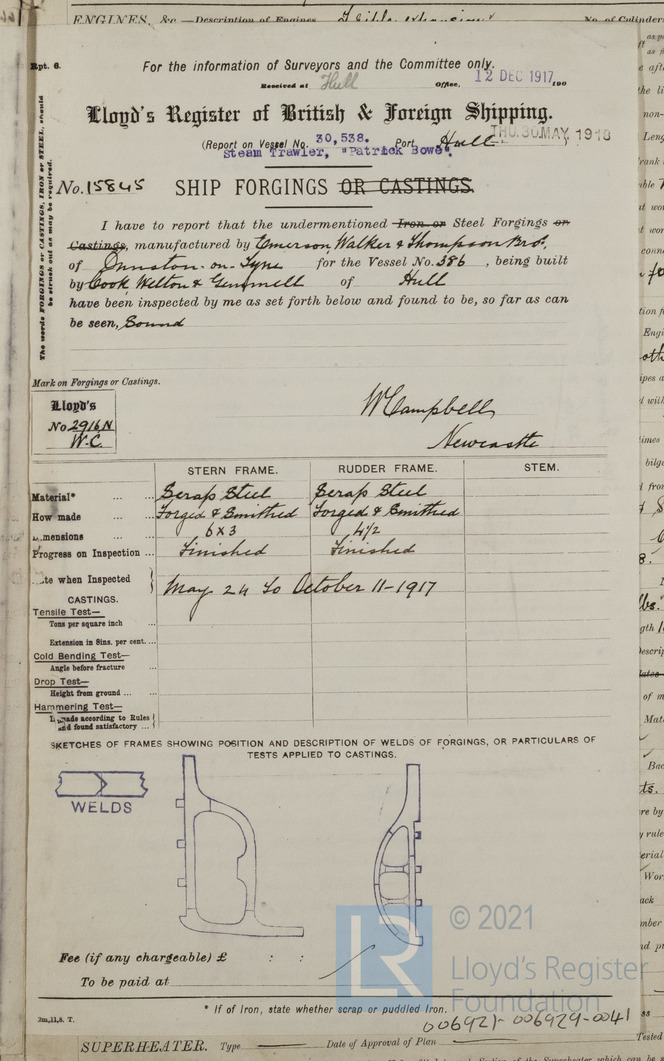 ENGINES, &c.—Description of Engines Triple expansion No. of Cylinders
Rpt. 6.
For the information of Surveyors and the Committee only.
Received at Hull Office, 12 DEC 1917 190
Lloyd's Register of British & Foreign Shipping.
(Report on Vessel No. 30,538. Port Hull
THU. 30 MAY 1918
Steam Trawler, "Patrick Bowe".
No. 15845 SHIP FORGINGS OR CASTINGS.
The words FORGINGS or CASTINGS, IRON or STEEL, should
be struck out as may be required.
I have to report that the undermentioned Iron or Steel Forgings or
Castings, manufactured by Emerson, Walker & Thompson Bros.
of Dunston-on-Tyne for the Vessel No. 386, being built
by Cook Welton & Gemmell of Hull
have been inspected by me as set forth below and found to be, so far as can
be seen, Sound
Mark on Forgings or Castings.
Lloyd's
No 2916 N
W.C.
W Campbell
Newcastle
STERN FRAME. RUDDER FRAME. STEM.
Material* ... ... Scrap Steel Scrap Steel
How made ... ... Forged & Smithed Forged & Smithed
mensions ... ... 6 x 3 4 1/2
Progress on Inspection ... Finished Finished
te when Inspected } May 24 to October 11-1917
CASTINGS.
Tensile Test—
Tons per square inch ...
Extension in 8ins. per cent. ...
Cold Bending Test—
Angle before fracture ...
Drop Test—
Height from ground ... ...
Hammering Test—
made according to Rules }
and found satisfactory ... }
SKETCHES OF FRAMES SHOWING POSITION AND DESCRIPTION OF WELDS OF FORGINGS, OR PARTICULARS OF
TESTS APPLIED TO CASTINGS.
WELDS
Fee (if any chargeable) £ : :
To be paid at
* If of Iron, state whether scrap or puddled Iron.
2m,11,8. T.
006921-006929-0041
LR
© 2021
Lloyd's Register
Foundation
SUPERHEATER. Type Date of Approval of Plan Tested